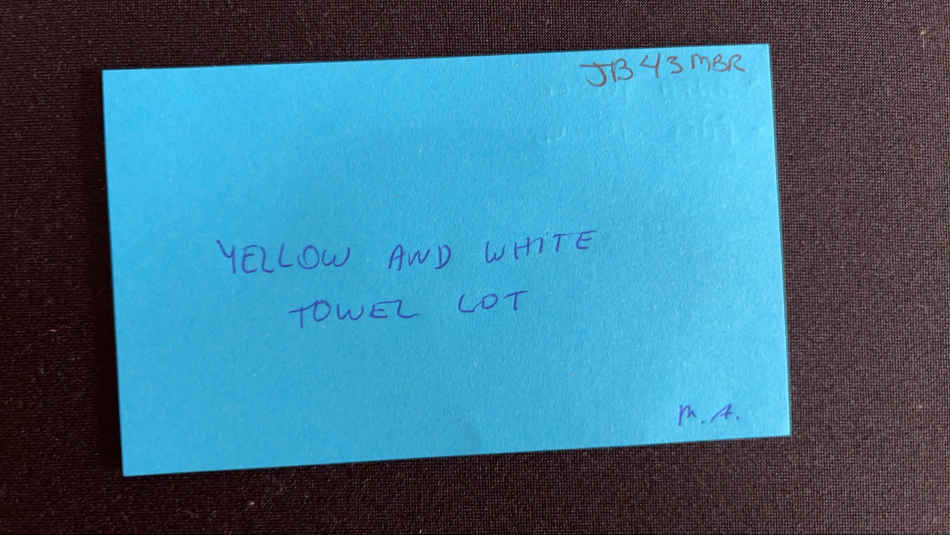 JB43MBR
YELLOW AND WHITE
TOWEL LOT
M. A.